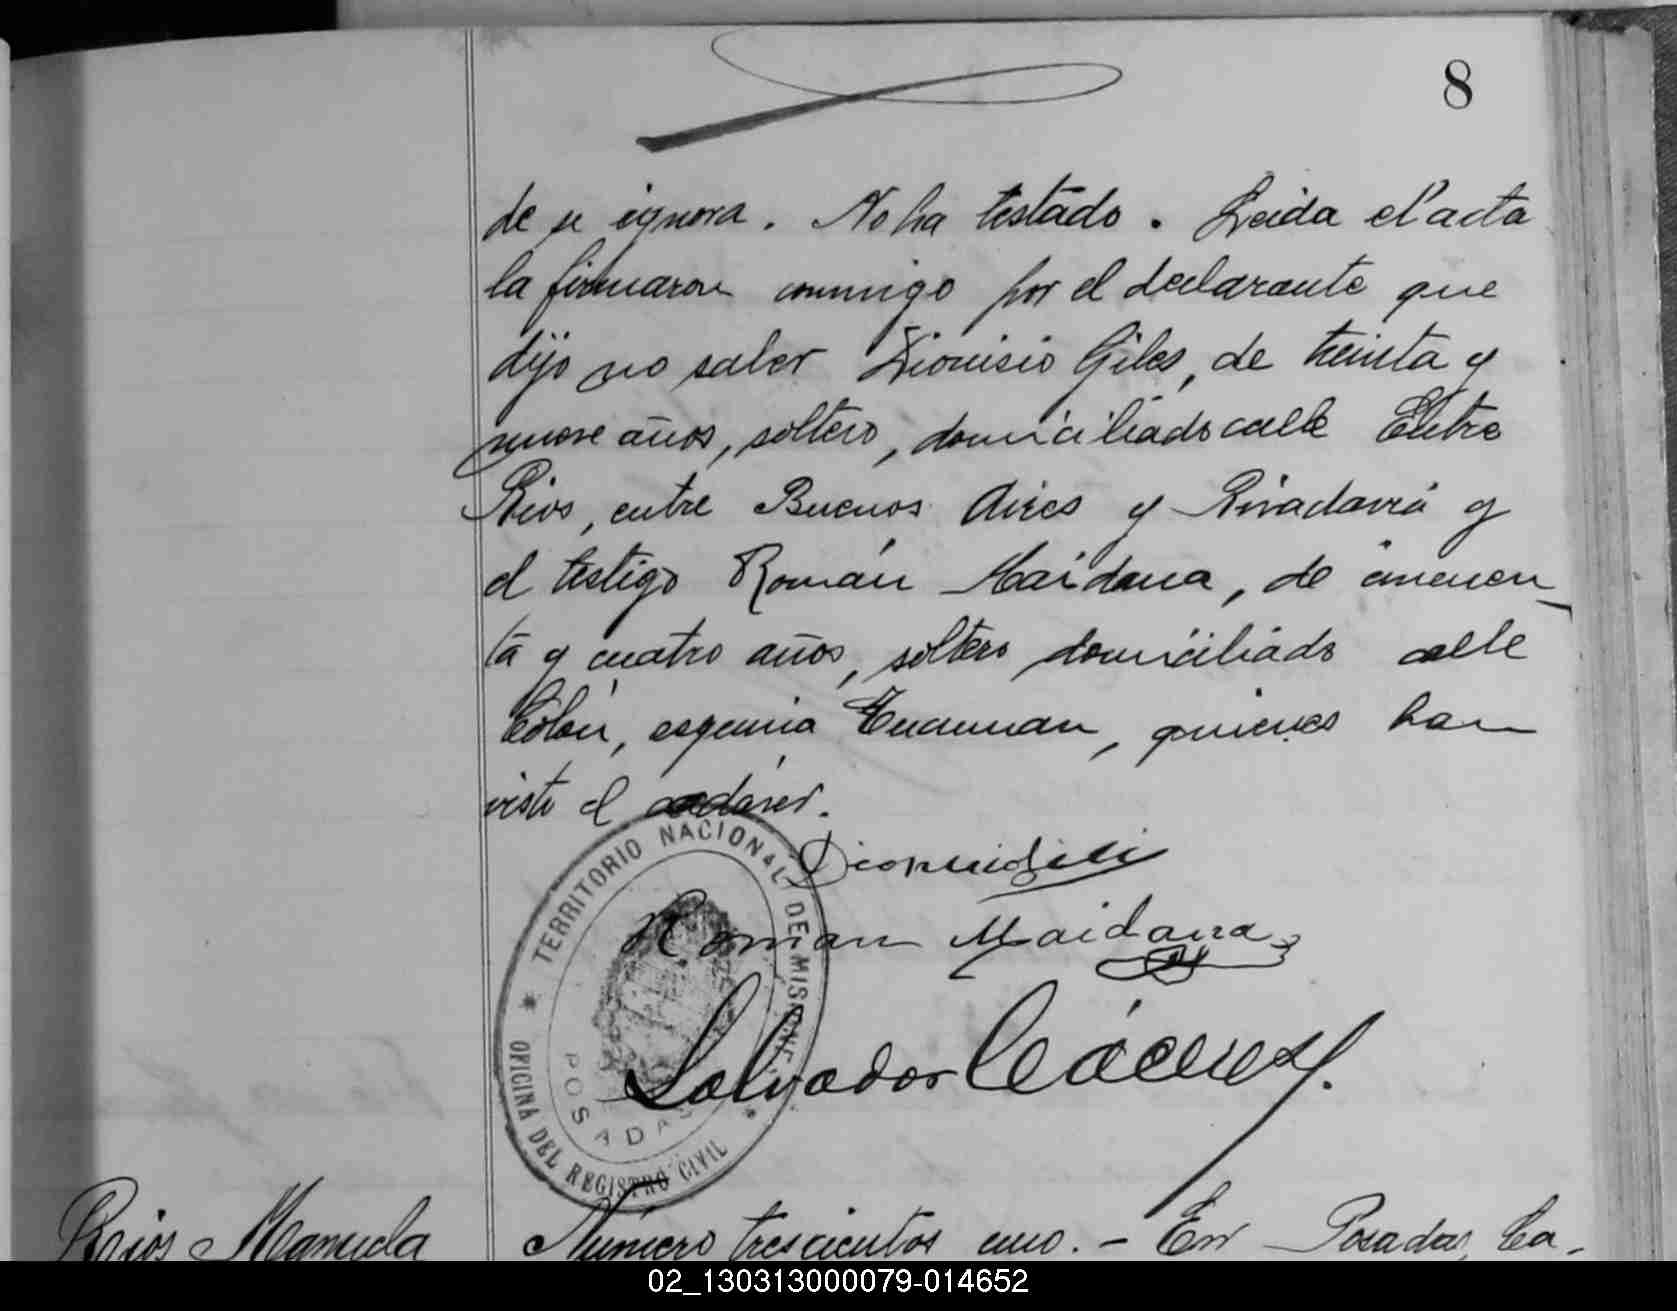 8
de se ignora. No ha testado. Leida el acta
la firmaron conmigo por el declarante que
dijo no saber Dionisio Giles, de treinta y
nueve años, soltero, domiciliado calle Entre
Rios, entre Buenos Aires y Rivadavia y
el testigo Román Maidana, de cincuen-
ta y cuatro años, soltero domiciliado calle
Colón, esquina Tucuman, quienes han
visto el cadáver.
Roman Maidana
Salvador Cáceres
TERRITORIO NACIONAL DE MISIONES
POSADAS
OFICINA DEL REGISTRO CIVIL
Rios Manuela
Número trescientos uno. - En Posadas, Ca-
02_130313000079-014652